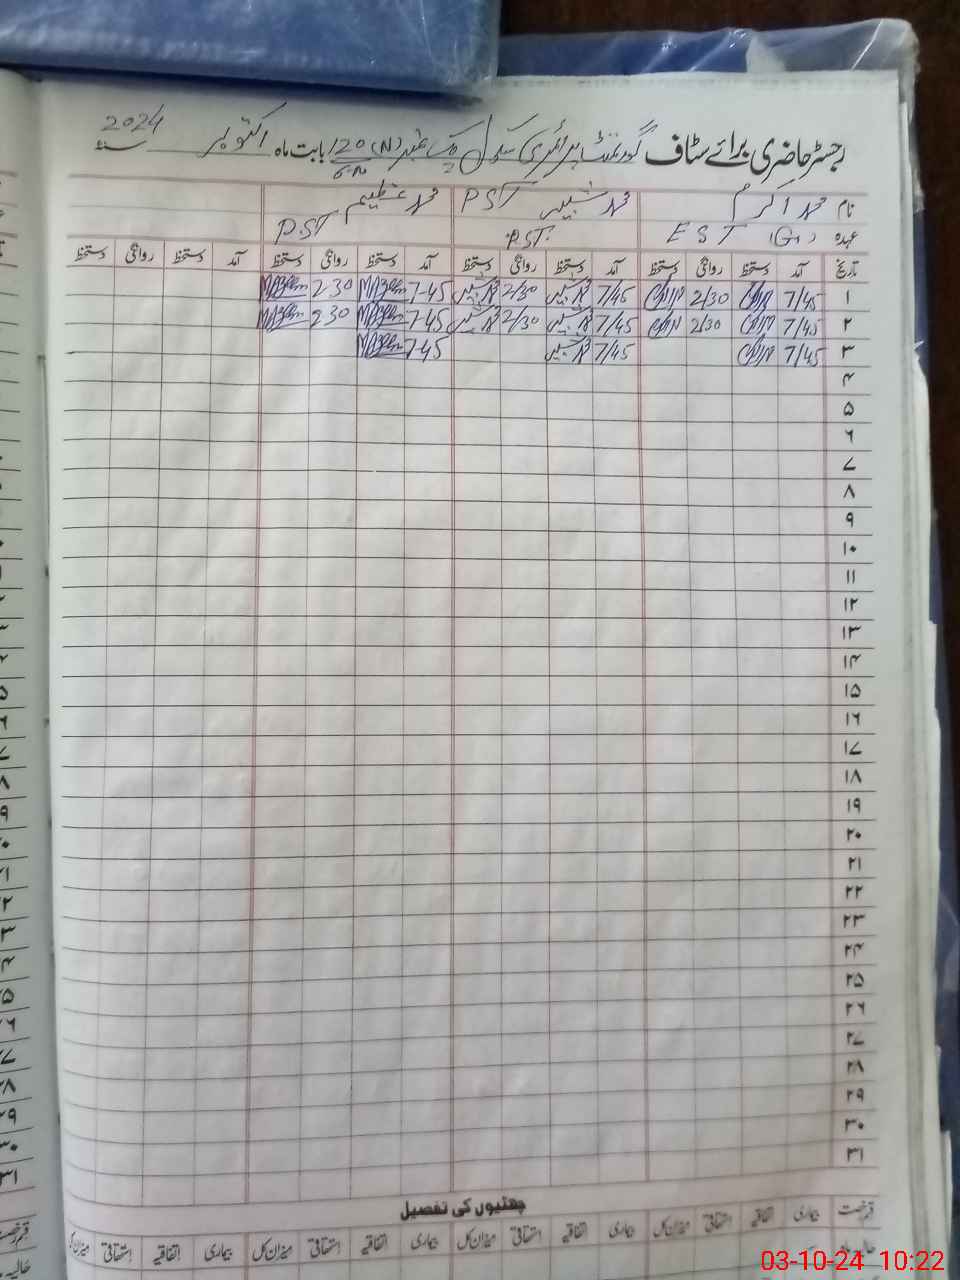 رجسٹر حاضری برائے سٹاف گورنمنٹ پرائمری سکول چک نمبر 120(N) بابت ماہ اکتوبر سنہ 2024
نام محمد اکرم محمد شبیر PST محمد عظیم
عہدہ EST (G) P.ST. P.ST
تاریخ آمد دستخط روانگی دستخط آمد دستخط روانگی دستخط آمد دستخط روانگی دستخط آمد دستخط روانگی دستخط
۱ 7/45 2/30 7/45 محمد شبیر 2/30 محمد شبیر 7-45 MAzeem 2-30 MAzeem
۲ 7/45 2/30 7/45 محمد شبیر 2/30 محمد شبیر 7-45 MAzeem 2-30 MAzeem
۳ 7/45 7/45 محمد شبیر 7-45 MAzeem
۴
۵
۶
۷
۸
۹
۱۰
۱۱
۱۲
۱۳
۱۴
۱۵
۱۶
۱۷
۱۸
۱۹
۲۰
۲۱
۲۲
۲۳
۲۴
۲۵
۲۶
۲۷
۲۸
۲۹
۳۰
۳۱
چھٹیوں کی تفصیل
قسم رخصت بیماری اتفاقیہ استحقاقی میزان کل بیماری اتفاقیہ استحقاقی میزان کل بیماری اتفاقیہ استحقاقی میزان کل بیماری اتفاقیہ استحقاقی میزان کل
03-10-24 10:22